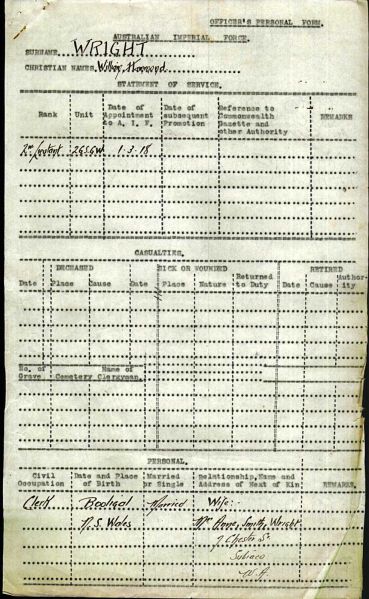 OFFICER'S PERSONAL FORM.
AUSTRALIAN IMPERIAL FORCE.
SURNAME WRIGHT
CHRISTIAN NAMES
STATEMENT OF SERVICE.
Rank Unit Date of Appointment to A. I. F. Date of subsequent Promotion Reference to Commonwealth Gazette and other Authority REMARKS
1-3-18
CASUALTIES.
DECEASED SICK OR WOUNDED RETIRED
Date Place Cause Date Place Nature Returned to Duty Date Cause Author-ity
No. of Grave Cemetery Name of Clergyman.
PERSONAL.
Civil Occupation Date and Place of Birth Married or Single Relationship, Name and Address of Next of Kin REMARKS.
Clerk Married Wife:-
N.S. Wales Smith Wright
7 Chester St
Subiaco
W.A.